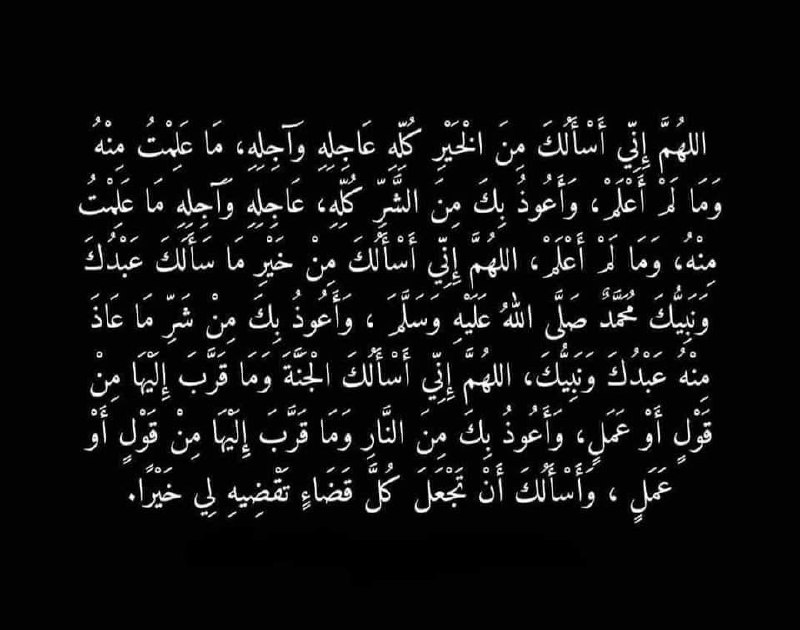 اللهُمَّ إِنِّي أَسْأَلُكَ مِنَ الْخَيْرِ كُلِّهِ عَاجِلِهِ وَآجِلِهِ، مَا عَلِمْتُ مِنْهُ
وَمَا لَمْ أَعْلَمْ، وَأَعُوذُ بِكَ مِنَ الشَّرِّ كُلِّهِ، عَاجِلِهِ وَآجِلِهِ مَا عَلِمْتُ
مِنْهُ، وَمَا لَمْ أَعْلَمْ، اللهُمَّ إِنِّي أَسْأَلُكَ مِنْ خَيْرِ مَا سَأَلَكَ عَبْدُكَ
وَنَبِيُّكَ مُحَمَّدٌ صَلَّى اللهُ عَلَيْهِ وَسَلَّمَ ، وَأَعُوذُ بِكَ مِنْ شَرِّ مَا عَاذَ
مِنْهُ عَبْدُكَ وَنَبِيُّكَ، اللهُمَّ إِنِّي أَسْأَلُكَ الْجَنَّةَ وَمَا قَرَّبَ إِلَيْهَا مِنْ
قَوْلٍ أَوْ عَمَلٍ، وَأَعُوذُ بِكَ مِنَ النَّارِ وَمَا قَرَّبَ إِلَيْهَا مِنْ قَوْلٍ أَوْ
عَمَلٍ ، وَأَسْأَلُكَ أَنْ تَجْعَلَ كُلَّ قَضَاءٍ تَقْضِيهِ لِي خَيْرًا.